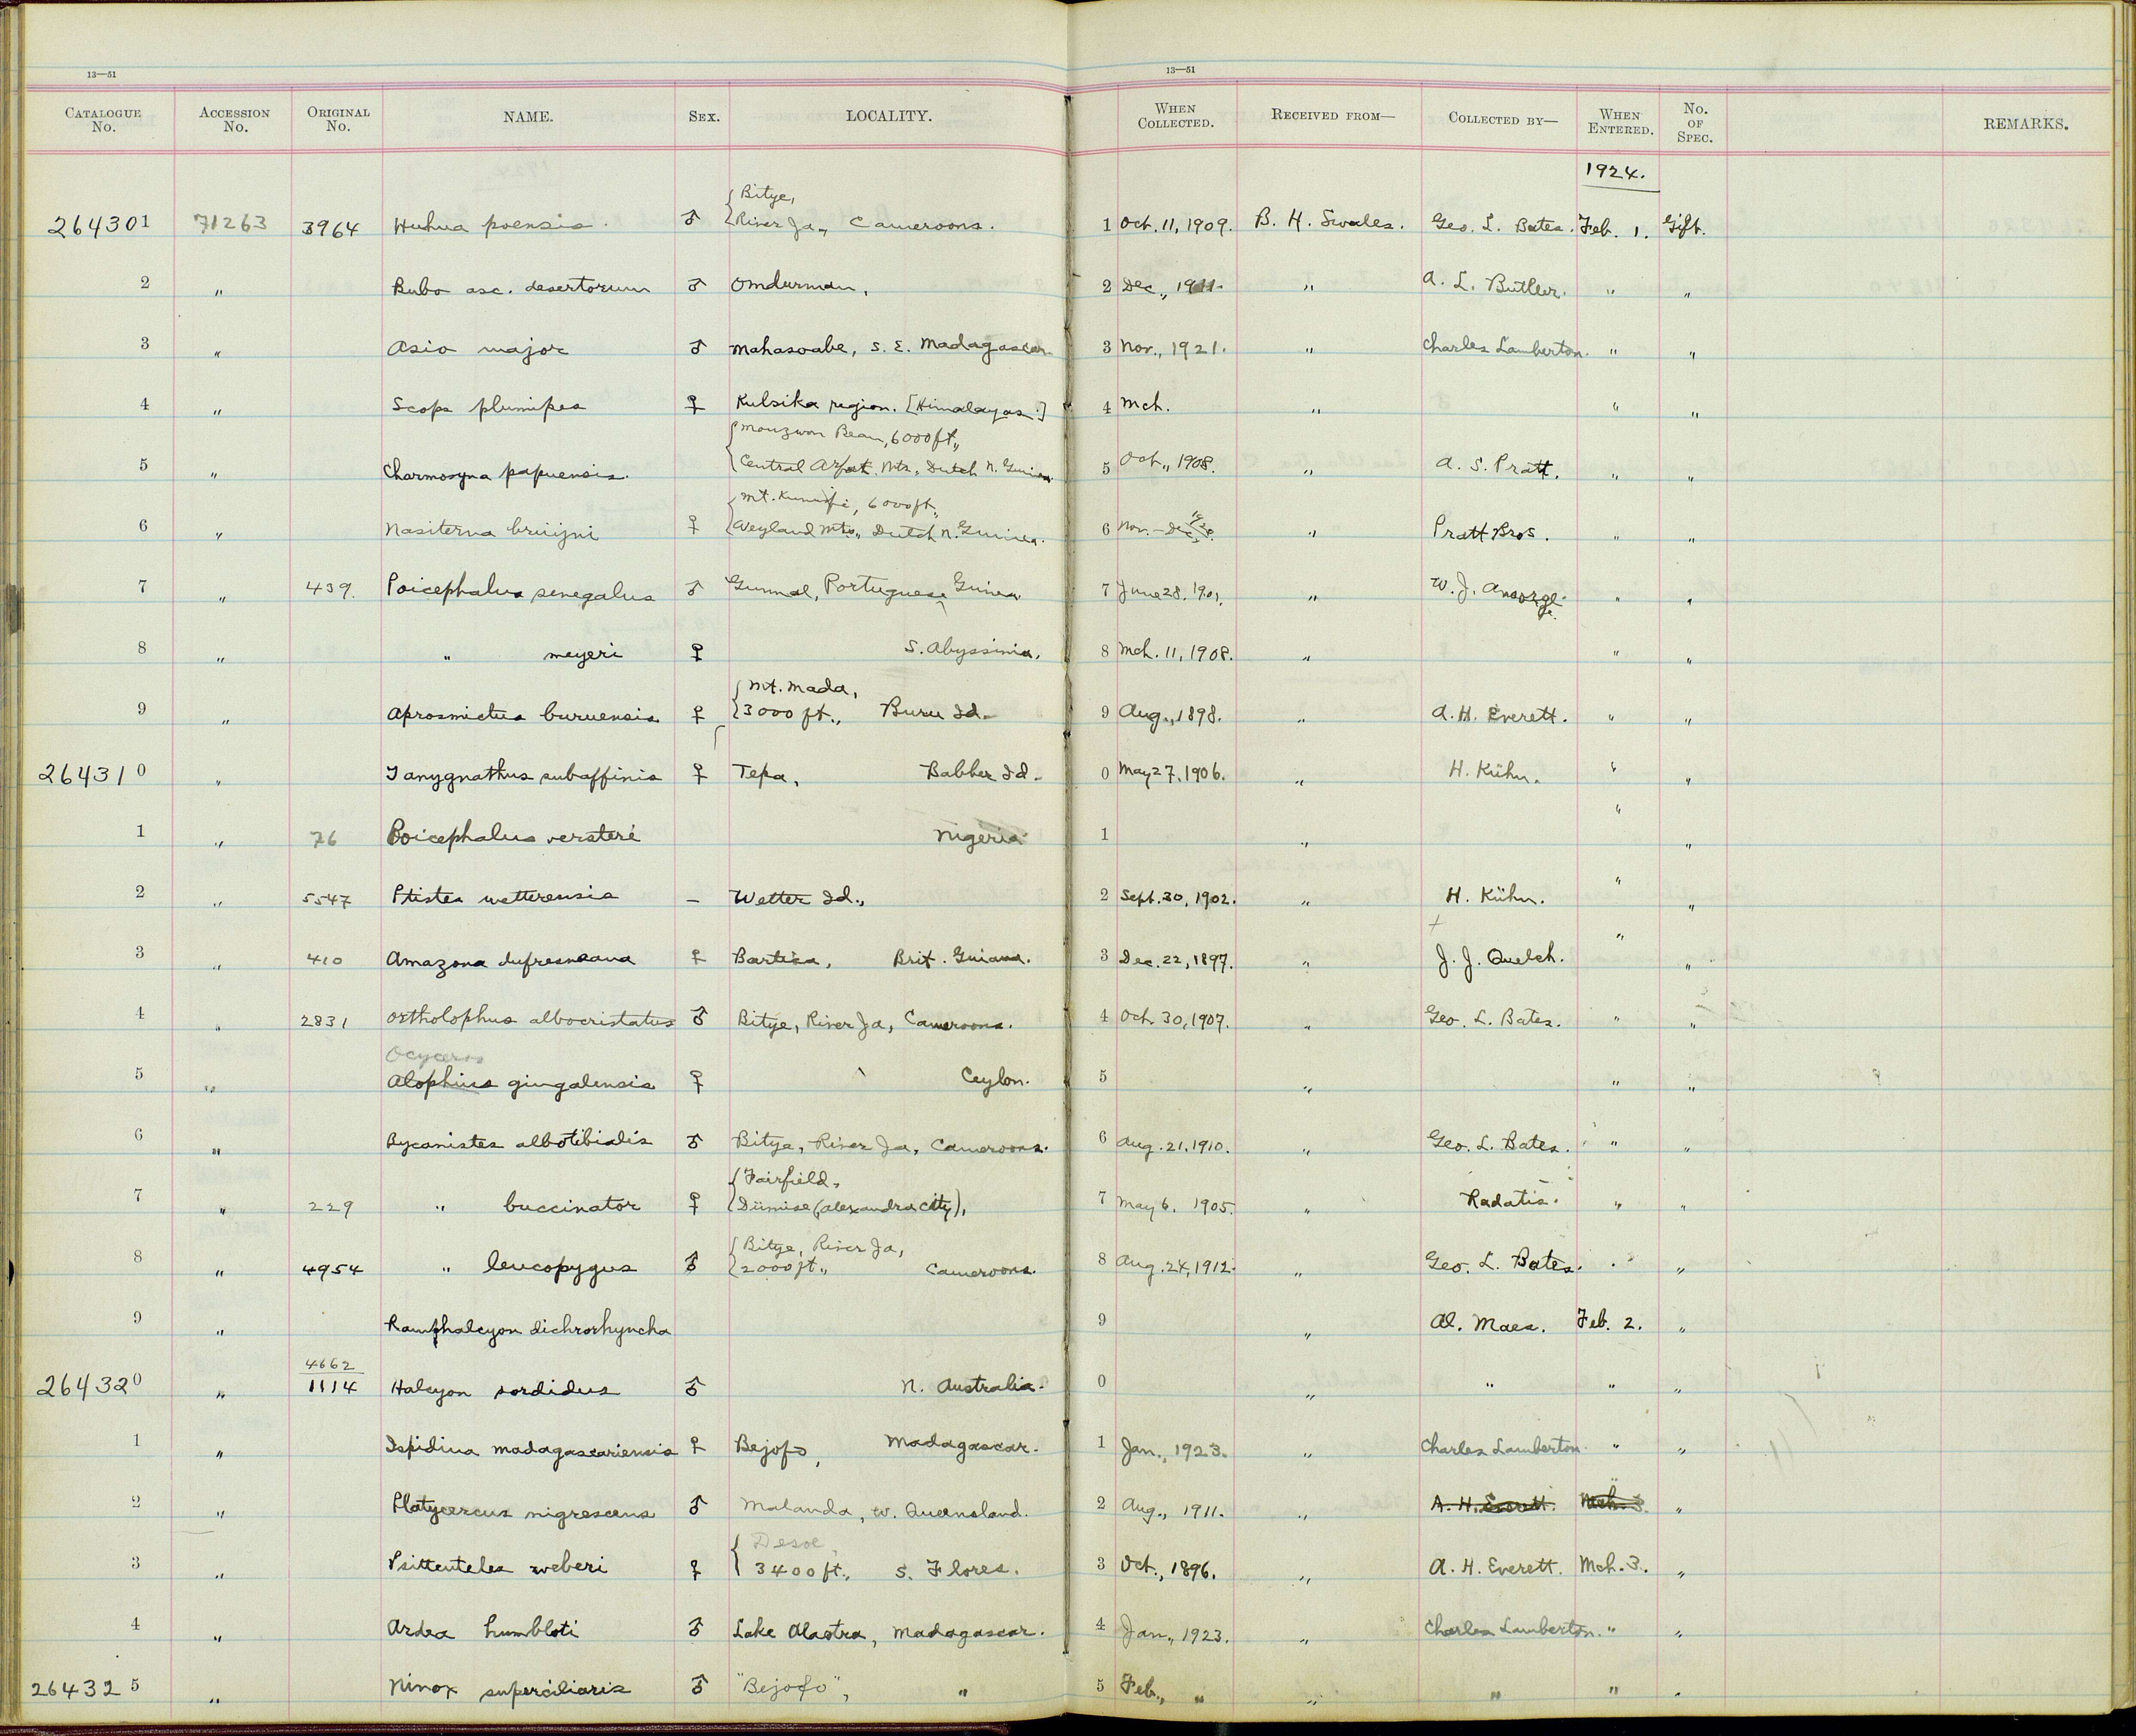 13—51
13—51
CATALOGUE No. ACCESSION No. ORIGINAL No. NAME. SEX. LOCALITY. WHEN COLLECTED. RECEIVED FROM— COLLECTED BY— WHEN ENTERED. No. OF SPEC. REMARKS.
1924.
{Bitye,
264301 71263 3964 Huhua poensis. ♂ River Ja., Cameroons. 1 Oct. 11, 1909. B. H. Swales. Geo. L. Bates. Feb. 1. Gift.
2 " Bubo asc. desertorum ♂ Omdurman, 2 Dec., 1911. " A. L. Butler. " "
3 " Asio major ♂ Mahasoabe, S. E. Madagascar. 3 Nov., 1921. " Charles Lamberton. " "
4 " Scops plumipes ♀ Kulsika region. [Himalayas.] 4 Mch. " " "
6000 ft.,
5 " Charmosyna papuensis. Central Arfak Mts., Dutch N. Guinea 5 Oct., 1908. " A. S. Pratt. " "
{Mt. 6000 ft.,
6 " Nasiterna bruijni ♀ Weyland Mts., Dutch N. Guinea. 6 Nov.-Dec. " Pratt Bros. " "
7 " 439. Poicephalus senegalus ♂ Gunnal, Portuguese Guinea 7 June 28, 1901. " W. J. Ansorge. " "
8 " " meyeri ♀ S. Abyssinia. 8 Mch. 11, 1908. " " "
{Mt. Mada,
9 " Aprosmictus buruensis ♀ 3000 ft., Buru Id. 9 Aug., 1898. " A. H. Everett. " "
264310 " Tanygnathus subaffinis ♀ Tepa, Babber Id. 0 May 27, 1906. " H. Kühn. " "
1 " 76 Poicephalus versteri Nigeria 1 " " "
2 " 5547 Ptistes wetterensis – Wetter Id., 2 Sept. 30, 1902. " H. Kühn. " "
3 " 410 Amazona dufresneana ♀ Bartica, Brit. Guiana. 3 Dec. 22, 1897. " J. J. Quelch. " "
4 " 2831 Ortholophus albocristatus ♂ Bitye, River Ja, Cameroons. 4 Oct. 30, 1907. " Geo. L. Bates. " "
Ocyceros
5 " Alophius gingalensis ♀ Ceylon. 5 " " "
6 " Bycanistes albotibialis ♂ Bitye, River Ja, Cameroons. 6 Aug. 21, 1910. " Geo. L. Bates. " "
{Fairfield,
7 " 229 " buccinator ♀ (Alexandra City), 7 May 6, 1905. " Radatis. " "
{Bitye, River Ja,
8 " 4954 " leucopygus ♂ 2000 ft., Cameroons. 8 Aug. 24, 1912. " Geo. L. Bates. " "
9 " Ramphalcyon dichrorhyncha 9 " Al. Maes. Feb. 2. "
4662
264320 " 1114 Halcyon sordidus ♂ N. Australia. 0 " " " "
1 " Ispidina madagascariensis ♀ Bejofo, Madagascar. 1 Jan., 1923. " Charles Lamberton. " "
2 " Platycercus nigrescens ♂ Malanda, W. Queensland. 2 Aug., 1911. " A. H. Everett. Mch. 3. "
{Desoe,
3 " Psitteuteles weberi ♀ 3400 ft., S. Flores. 3 Oct., 1896. " A. H. Everett. Mch. 3. "
4 " Ardea humbloti ♂ Lake Alaotra, Madagascar. 4 Jan., 1923. " Charles Lamberton. " "
264325 " Ninox superciliaris ♂ "Bejofo", " 5 Feb., " " " " "